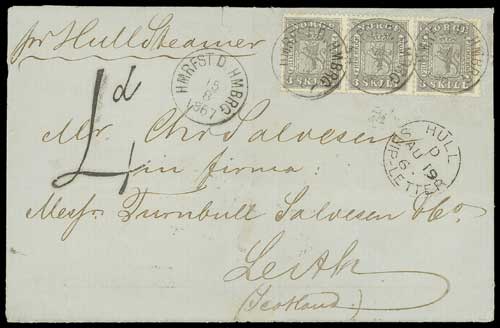 pr Hull Steamer
NORGE NORGE NORGE
SKILL SKILL SKILL
HMRFST D HMBRG
1867
4d
Mr. Chr Salvesen
in firma:
Messrs Turnbull Salvesen & Co.
Leith
(Scotland)
HULL
D
AU 19
67
SHIP-LETTER